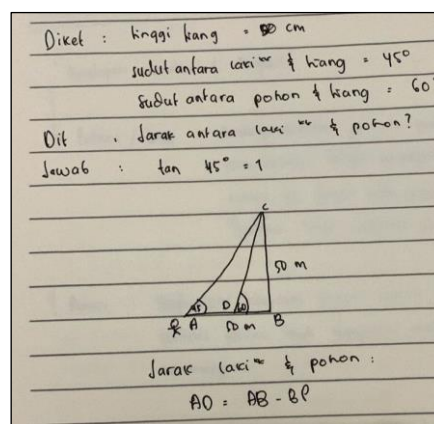 Diket : tinggi tiang = 50 cm
sudut antara laki" & tiang = 45°
sudut antara pohon & tiang = 60°
Dit . Jarak antara laki" & pohon?
Jawab : tan 45° = 1
C
50 m
45 D 60
A 50 m B
Jarak laki" & pohon :
AD = AB - BD